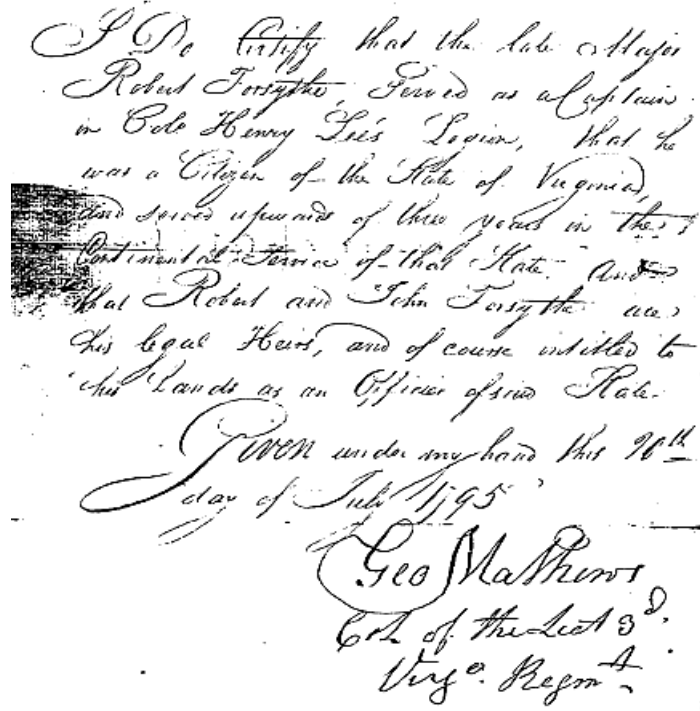 I Do Certify that the late Major
Robert Forsythe, Served as a Captain
in Colo Henry Lee's Legion, that he
was a Citizen of the State of Virginia,
and served upwards of three years in the
Continental Service of that State. And
that Robert and John Forsythe are
his legal Heirs, and of course intitled to
his Lands as an Officier of said State.
Given under my hand this 20th
day of July 1795
Geo Mathews
Col. of the 3d.
Virga. Regmt.